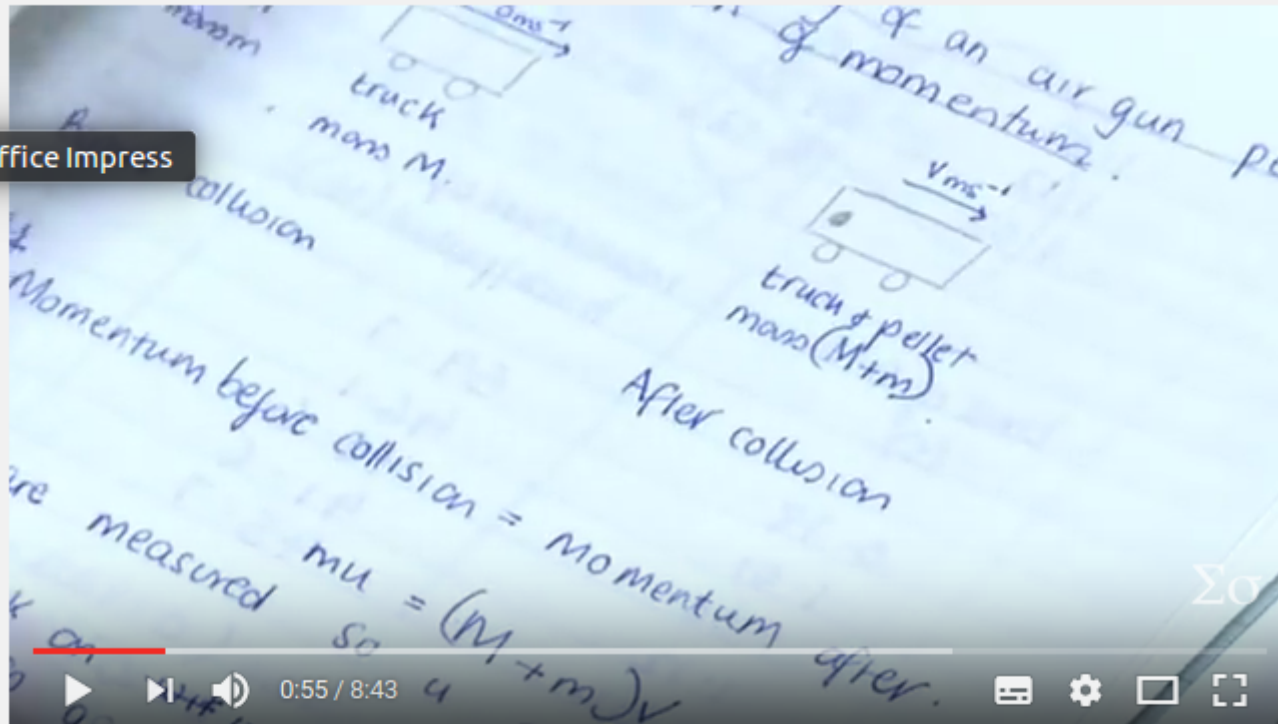 of an air gun
of momentum.
0ms⁻¹
truck
mass M.
ffice Impress
collision
Vms⁻¹
truck & pellet
mass (M+m).
After collision
Momentum before collision = Momentum after.
mu = (M+m)v
are measured so u
on
0:55 / 8:43
Σσ